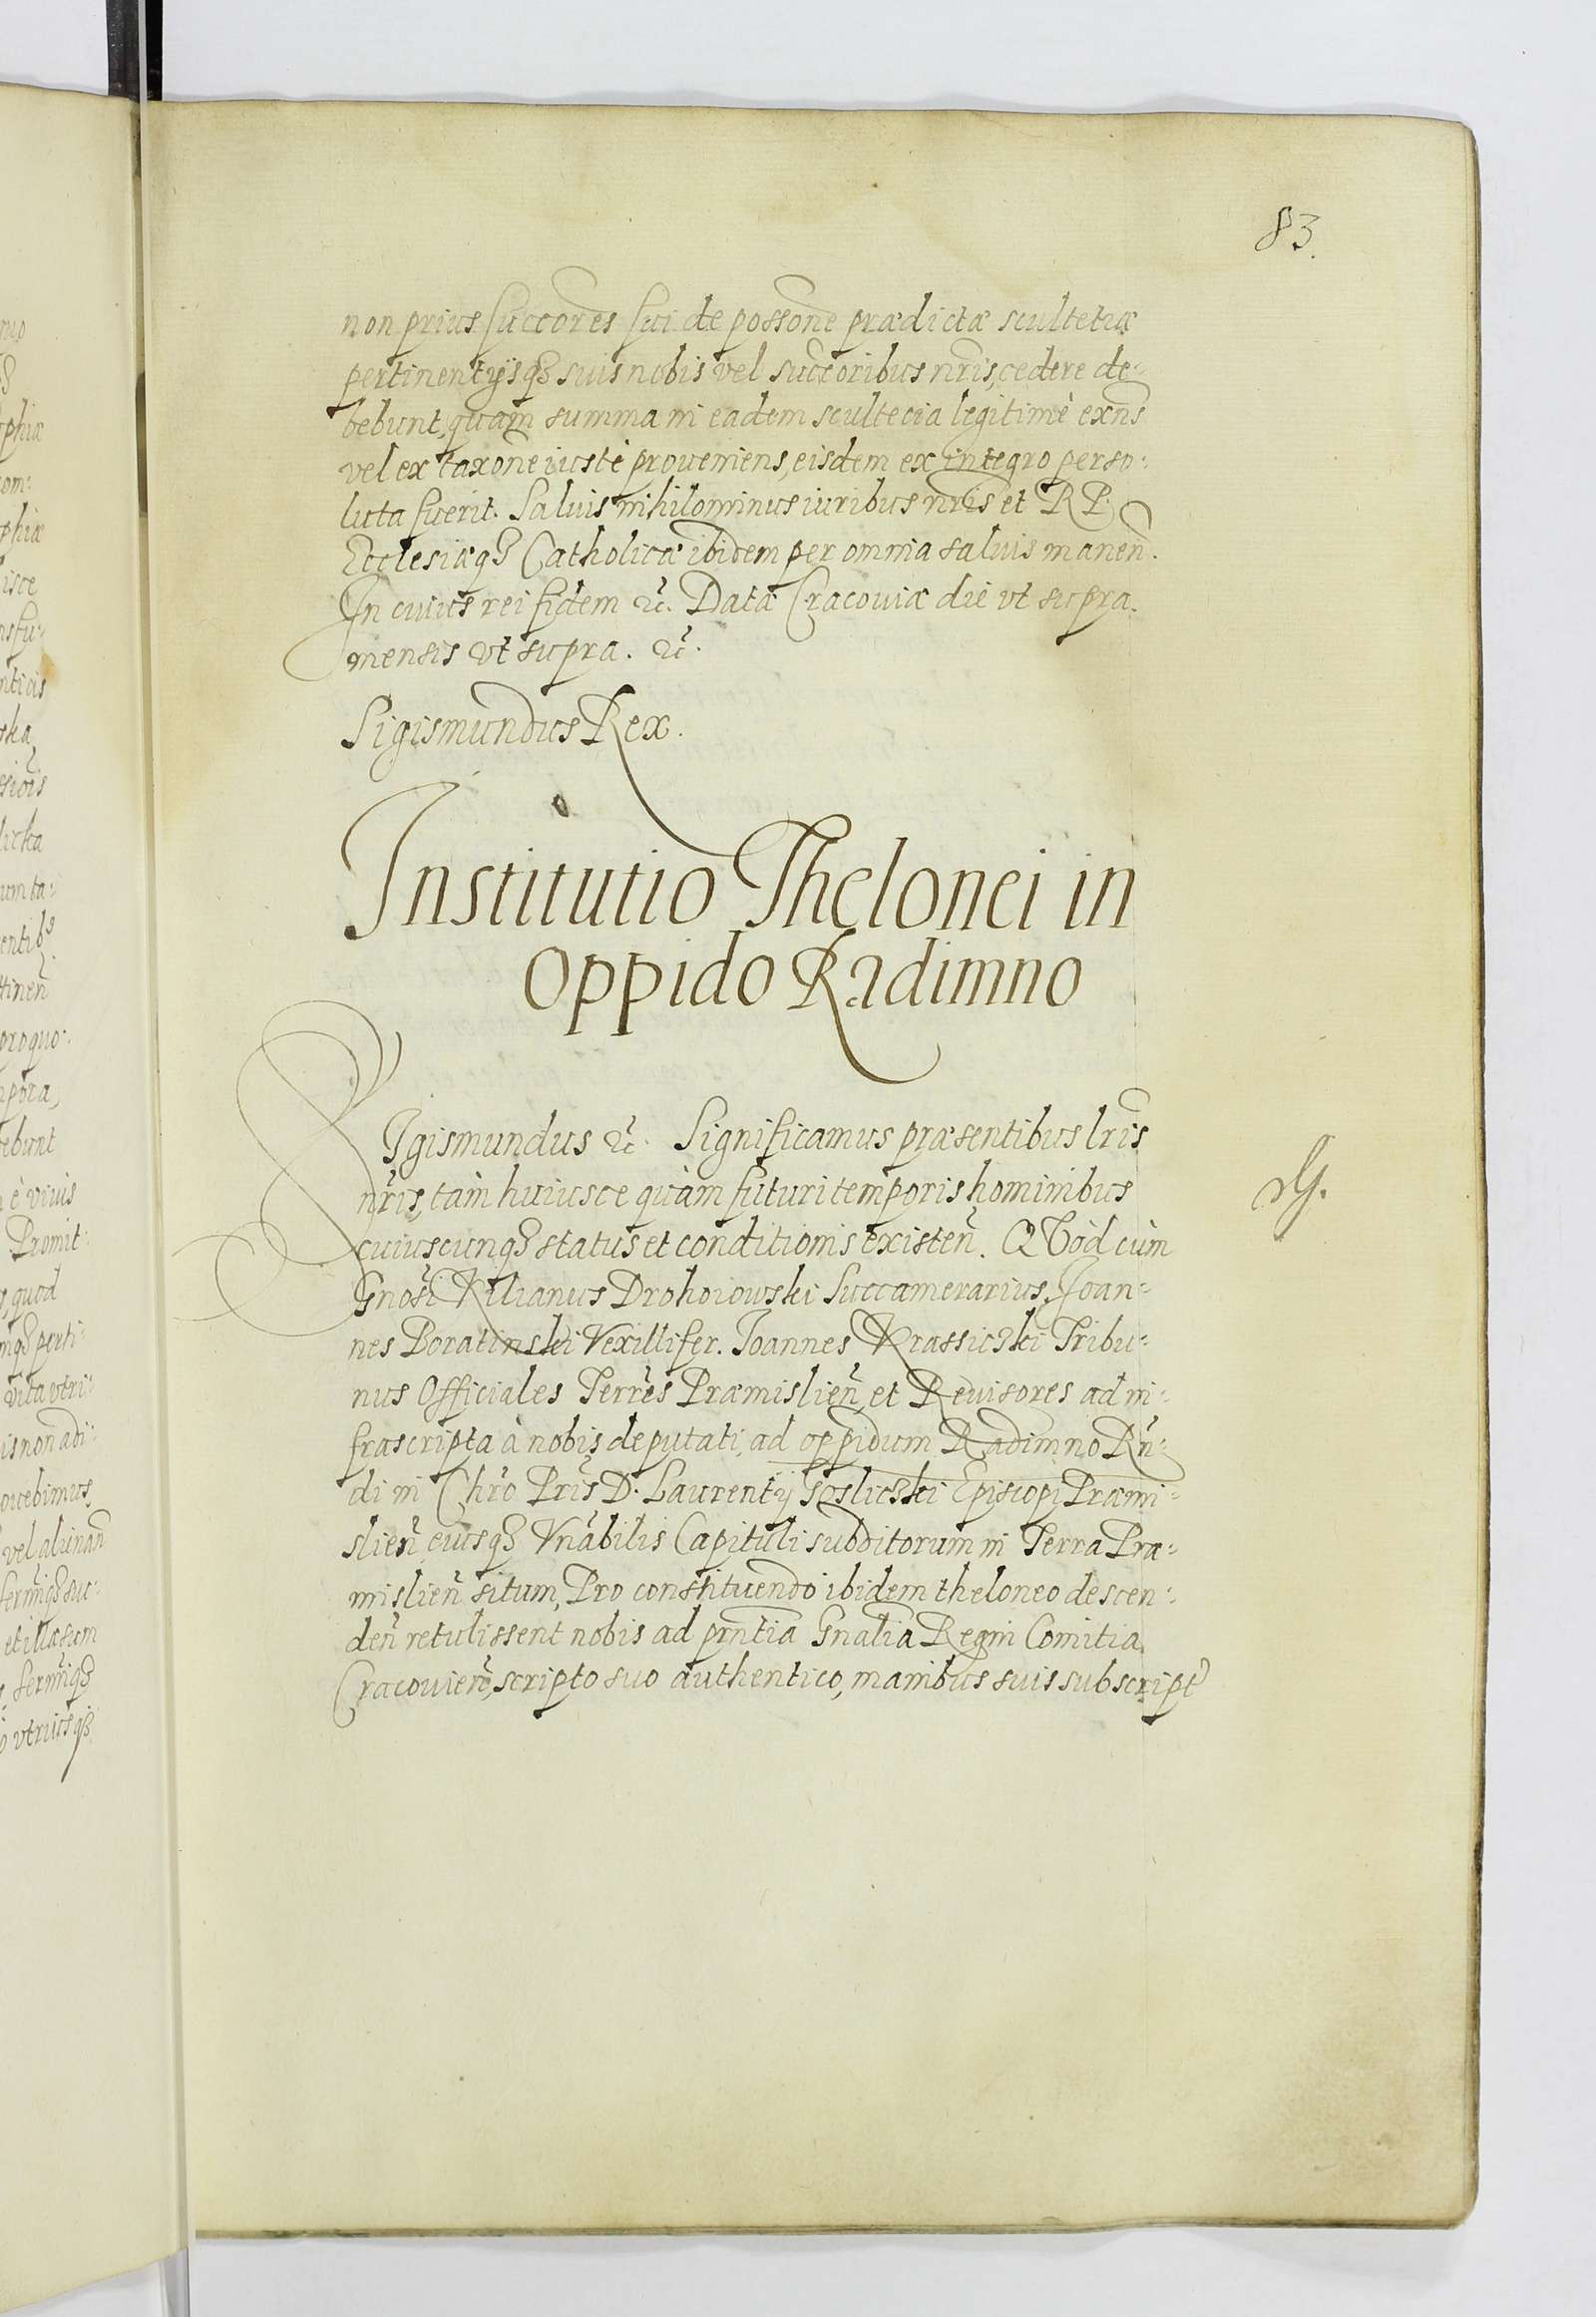 83.
non prius succ̃ores sui de possõne prædictæ scultetiæ
pertinentÿsq3 suis nobis vel succ̃oribus nr̃is, cedere de-
bebunt, quam summa in eadem scultecia legitimè exñs
vel ex taxõne iustè proueniens, eisdem ex integro perso-
luta fuerit. Saluis nihilominus iuribus nr̃is et R P.
Ecclesiæq3 Catholicæ ibidem per omnia saluis manen̄.
In cuius rei fidem &c̃. Data Cracouiæ die vt supra.
mensis vt supra. &c̃.
Sigismundus Rex.
Institutio Thelonei in
oppido Radimno
SIgismundus &c̃. Significamus præsentibus lr̃is
nr̃is, tàm huiusce quàm futuri temporis hominibus
cuiuscunq3 status et conditionis existen̄. QVòd cùm
Gnõsi Kilianus Drohoiowski Succamerarius, Joan-
nes Boratinski Vexillifer. Joannes Krassiczki Tribu-
nus Officiales Terrẽs Præmislien̄, et Reuisores ad in-
frascripta à nobis deputati, ad oppidum Radimno Rñ-
di in Chr̃o Pr̃is D. Laurentÿ Gosliczki Episcopi Præmi-
slien̄ eiusq3 Vnãbilis Capituli subditorum in Terra Præ-
mislien̄ situm, Pro constituendo ibidem theloneo descen-
den̄ retulissent nobis ad pr̃ntia Gnãlia Regni Comitia
Cracouien̄, scripto suo authentico, manibus suis subscript̃